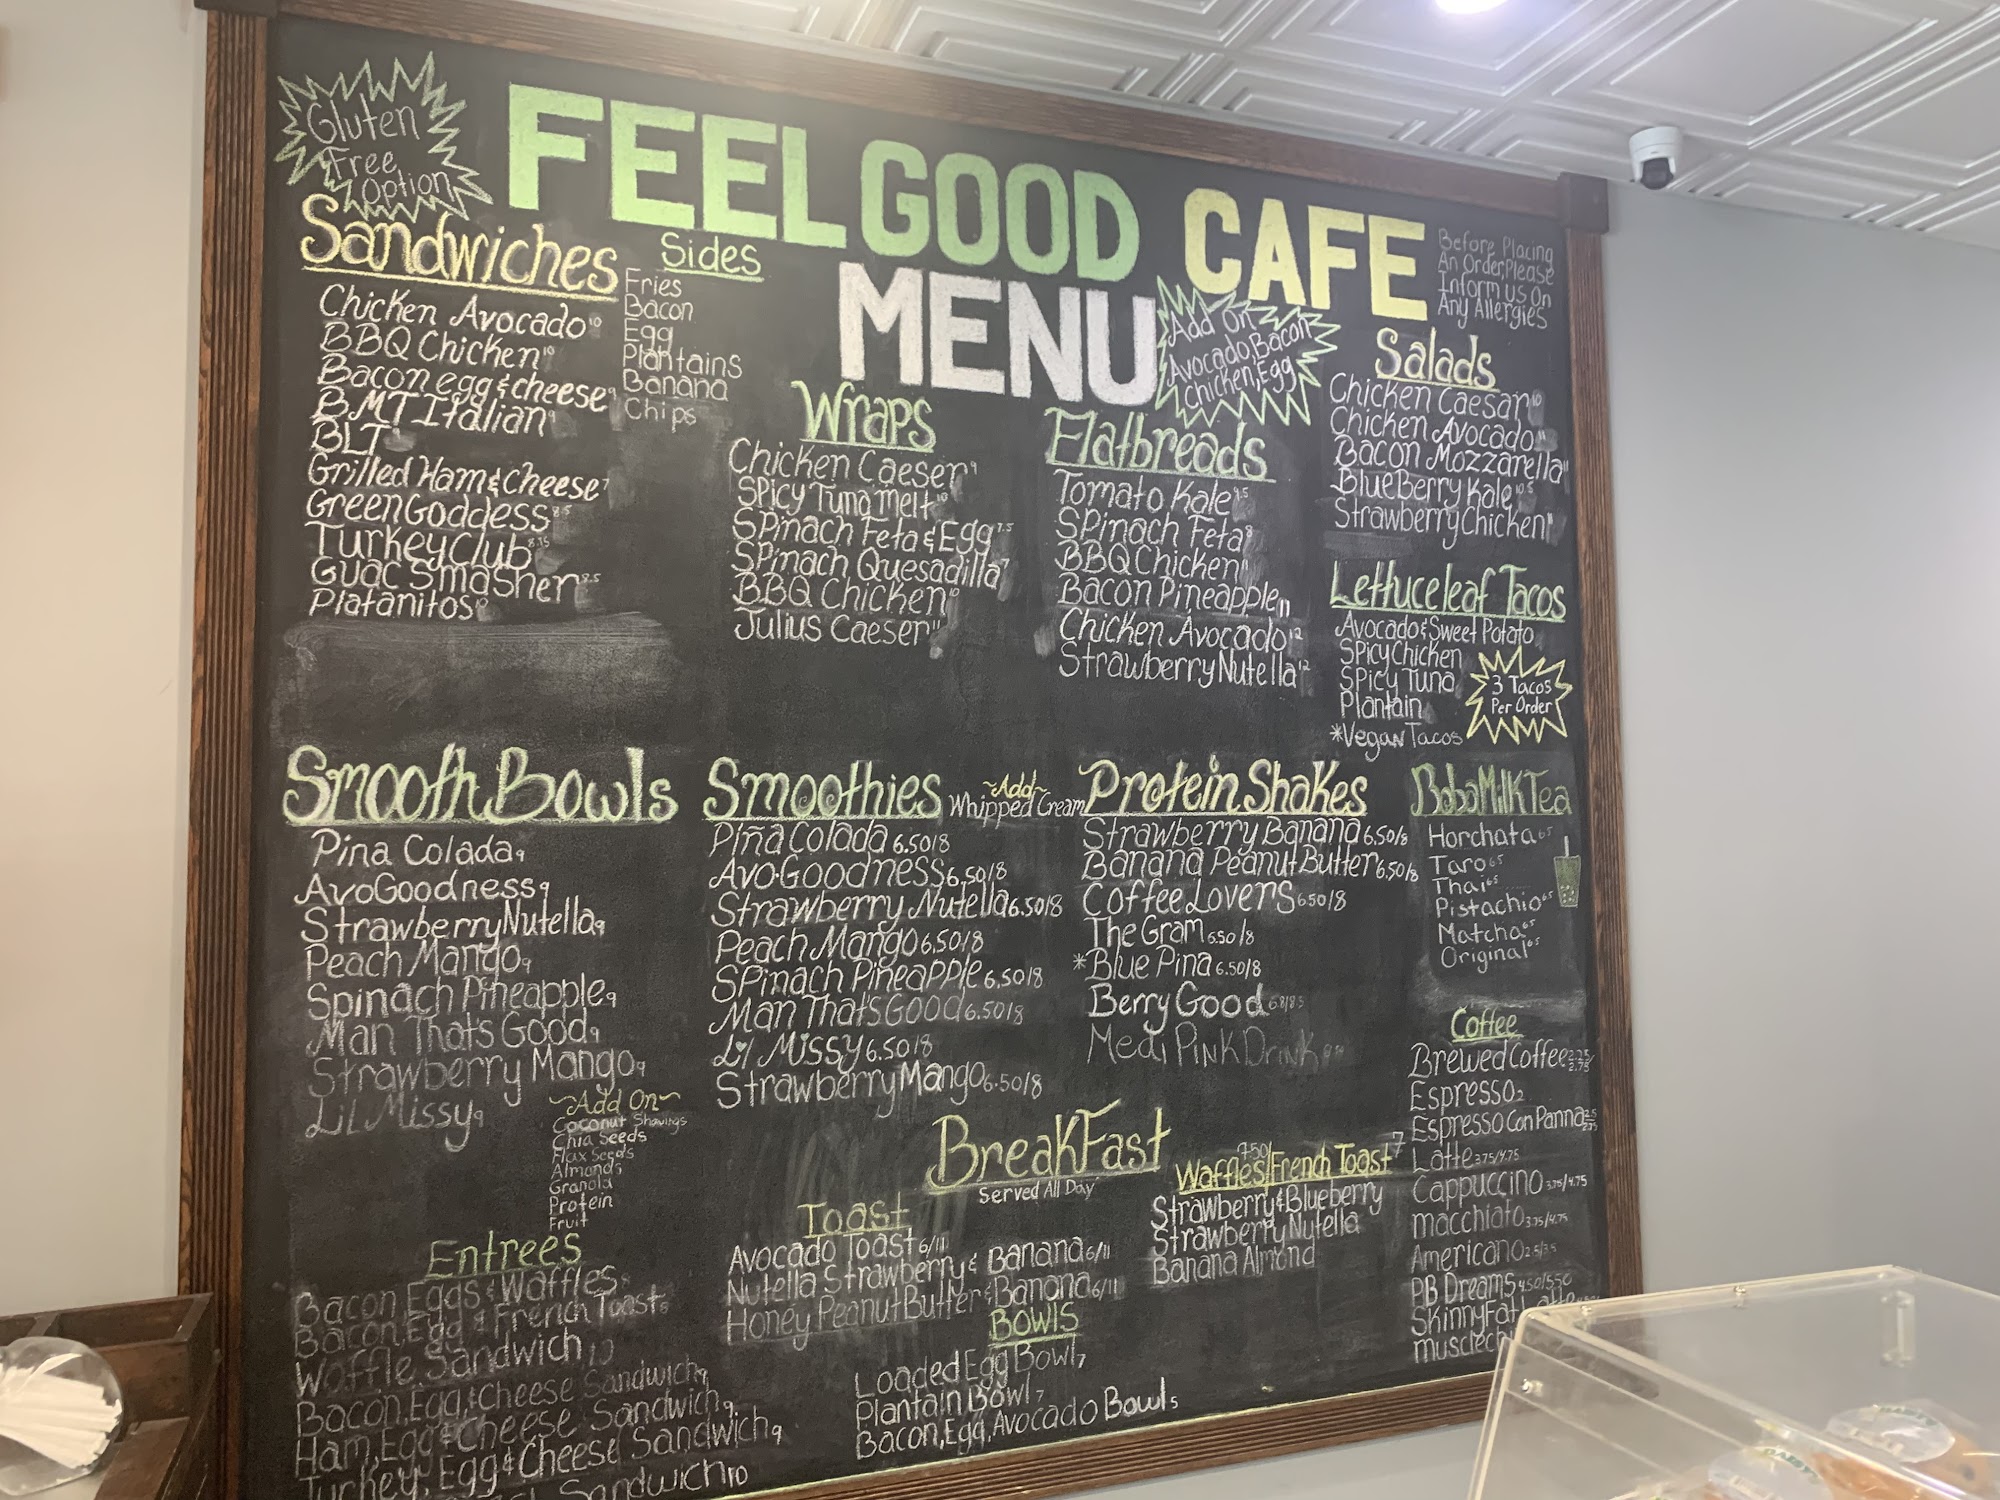 Gluten
Free
Option
FEEL GOOD CAFE
MENU
Before Placing
An Order, Please
Inform us On
Any Allergies
Sandwiches
Chicken Avocado 10
BBQ Chicken 10
Bacon egg & cheese 9
BMT Italian 9
BLT
Grilled Ham & Cheese 7
Green Goddess 8.5
Turkey Club 8.75
Guac Smasher 8.5
Platanitos 10
Sides
Fries
Bacon
Egg
Plantains
Banana
Chips
Wraps
Chicken Caeser 9
Spicy Tuna Melt 10
Spinach Feta & Egg 7.5
Spinach Quesadilla 7
BBQ Chicken 10
Julius Caeser 11
Add On
Avocado, Bacon
Chicken, Egg
Flatbreads
Tomato Kale 9.5
Spinach Feta 8
BBQ Chicken 11
Bacon Pineapple 11
Chicken Avocado 12
Strawberry Nutella 12
Salads
Chicken Caesar 10
Chicken Avocado 11
Bacon Mozzarella 11
BlueBerry Kale 10.5
Strawberry Chicken 11
Lettuce leaf Tacos
Avocado & Sweet Potato
Spicy Chicken
Spicy Tuna
Plantain
*Vegan Tacos
3 Tacos
Per Order
Smooth Bowls
Pina Colada 9
AvoGoodness 9
Strawberry Nutella 9
Peach Mango 9
Spinach Pineapple 9
Man That's Good 9
Strawberry Mango 9
Lil Missy 9
~Add On~
Coconut Shavings
Chia Seeds
Flax Seeds
Almonds
Granola
Protein
Fruit
Smoothies
~Add~
Whipped Cream
Piña Colada 6.50/8
Avo-Goodness 6.50/8
Strawberry Nutella 6.50/8
Peach Mango 6.50/8
Spinach Pineapple 6.50/8
Man That's Good 6.50/8
Lil Missy 6.50/8
Strawberry Mango 6.50/8
Protein Shakes
Strawberry Banana 6.50/8
Banana Peanut Butter 6.50/8
Coffee Lovers 6.50/8
The Gram 6.50/8
*Blue Pina 6.50/8
Berry Good
Pink Drink
Boba Milk Tea
Horchata 6.5
Taro 6.5
Thai 6.5
Pistachio 6.5
Matcha 6.5
Original 6.5
Coffee
Brewed Coffee 2.25/2.75
Espresso 2
Espresso Con Panna 2.5/2.75
Latte 3.75/4.75
Cappuccino 3.75/4.75
macchiato 3.75/4.75
Americano 2.5/3.5
PB Dreams 4.50/5.50
Skinny Fat
BreakFast
Served All Day
Toast
Avocado Toast 6/11
Nutella Strawberry & Banana 6/11
Honey Peanut Butter & Banana 6/11
Waffles 9.50/French Toast 7
Strawberry & Blueberry
Strawberry Nutella
Banana Almond
Bowls
Loaded Egg Bowl 7
Plantain Bowl 7
Bacon, Egg, Avocado Bowl 5
Entrees
Bacon, Eggs & Waffles
Bacon, Egg & French Toast 8
Waffle Sandwich 10
Bacon, Egg & Cheese Sandwich 9
Ham, Egg & Cheese Sandwich 9
Turkey, Egg & Cheese Sandwich 9
Sandwich 10